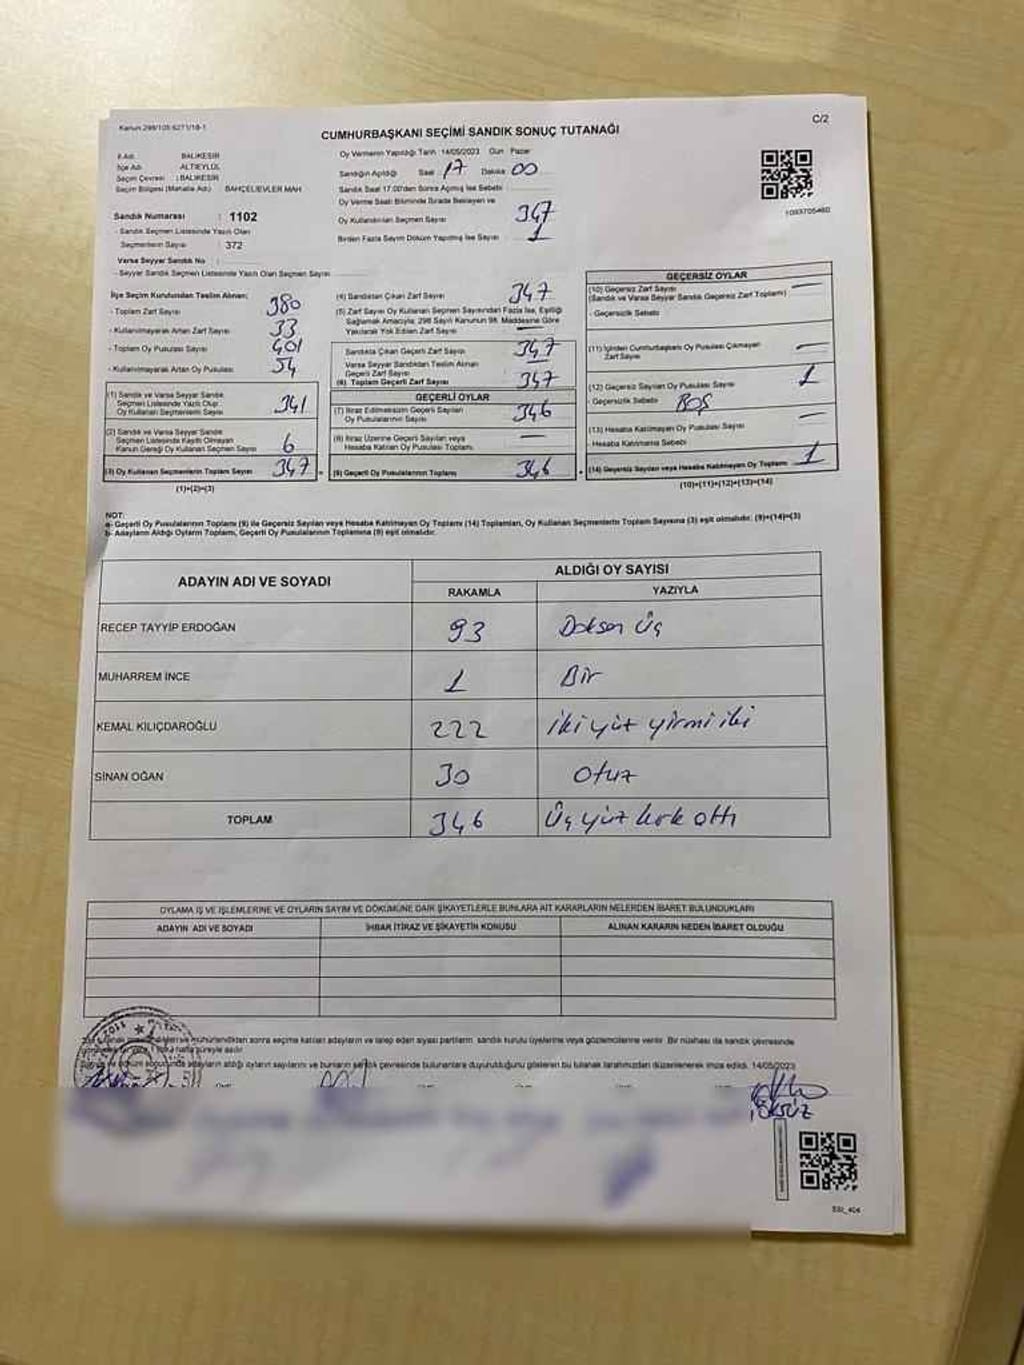 Kanun 298/105 6271/18-1
C/2
CUMHURBAŞKANI SEÇİMİ SANDIK SONUÇ TUTANAĞI
İl Adı : BALIKESİR
İlçe Adı : ALTIEYLÜL
Seçim Çevresi : BALIKESİR
Seçim Bölgesi (Mahalle Adı) : BAHÇELİEVLER MAH.
Sandık Numarası : 1102
- Sandık Seçmen Listesinde Yazılı Olan
Seçmenlerin Sayısı : 372
Varsa Seyyar Sandık No :
- Seyyar Sandık Seçmen Listesinde Yazılı Olan Seçmen Sayısı
Oy Vermenin Yapıldığı Tarih :14/05/2023 Gün : Pazar
Sandığın Açıldığı Saat : 17 Dakika 00
Sandık Saat 17:00'den Sonra Açılmış İse Sebebi
Oy Verme Saati Bitiminde Sırada Bekleyen ve
Oy Kullandırılan Seçmen Sayısı 347
Birden Fazla Sayım Döküm Yapılmış İse Sayısı 1
1093705460
İlçe Seçim Kurulundan Teslim Alınan;
- Toplam Zarf Sayısı 380
- Kullanılmayarak Artan Zarf Sayısı 33
- Toplam Oy Pusulası Sayısı 401
- Kullanılmayarak Artan Oy Pusulası 54
(1) Sandık ve Varsa Seyyar Sandık
Seçmen Listesinde Yazılı Olup
Oy Kullanan Seçmenlerin Sayısı 341
(2) Sandık ve Varsa Seyyar Sandık
Seçmen Listesinde Kayıtlı Olmayan
Kanun Gereği Oy Kullanan Seçmen Sayısı 6
(3) Oy Kullanan Seçmenlerin Toplam Sayısı 347
(1)+(2)=(3)
(4) Sandıktan Çıkan Zarf Sayısı 347
(5) Zarf Sayısı Oy Kullanan Seçmen Sayısından Fazla İse, Eşitliği
Sağlamak Amacıyla, 298 Sayılı Kanunun 98. Maddesine Göre
Yakılarak Yok Edilen Zarf Sayısı —
Sandıkta Çıkan Geçerli Zarf Sayısı 347
Varsa Seyyar Sandıktan Teslim Alınan
Geçerli Zarf Sayısı —
(6) Toplam Geçerli Zarf Sayısı 347
GEÇERLİ OYLAR
(7) İtiraz Edilmeksizin Geçerli Sayılan
Oy Pusulalarının Sayısı 346
(8) İtiraz Üzerine Geçerli Sayılan veya
Hesaba Katılan Oy Pusulası Toplamı —
(9) Geçerli Oy Pusulalarının Toplamı 346
GEÇERSİZ OYLAR
(10) Geçersiz Zarf Sayısı
(Sandık ve Varsa Seyyar Sandık Geçersiz Zarf Toplamı) —
- Geçersizlik Sebebi
(11) İçinden Cumhurbaşkanı Oy Pusulası Çıkmayan
Zarf Sayısı —
(12) Geçersiz Sayılan Oy Pusulası Sayısı 1
- Geçersizlik Sebebi BOŞ
(13) Hesaba Katılmayan Oy Pusulası Sayısı —
- Hesaba Katılmama Sebebi
(14) Geçersiz Sayılan veya Hesaba Katılmayan Oy Toplamı 1
(10)+(11)+(12)+(13)=(14)
NOT:
a- Geçerli Oy Pusulalarının Toplamı (9) ile Geçersiz Sayılan veya Hesaba Katılmayan Oy Toplamı (14) Toplamları, Oy Kullanan Seçmenlerin Toplam Sayısına (3) eşit olmalıdır. (9)+(14)=(3)
b- Adayların Aldığı Oyların Toplamı, Geçerli Oy Pusulalarının Toplamına (9) eşit olmalıdır.
ADAYIN ADI VE SOYADI
ALDIĞI OY SAYISI
RAKAMLA YAZIYLA
RECEP TAYYİP ERDOĞAN 93 Doksan Üç
MUHARREM İNCE 1 Bir
KEMAL KILIÇDAROĞLU 222 ikiyüz yirmi iki
SİNAN OĞAN 30 Otuz
TOPLAM 346 Üç yüz kırk altı
OYLAMA İŞ VE İŞLEMLERİNE VE OYLARIN SAYIM VE DÖKÜMÜNE DAİR ŞİKAYETLERLE BUNLARA AİT KARARLARIN NELERDEN İBARET BULUNDUKLARI
ADAYIN ADI VE SOYADI İHBAR İTİRAZ VE ŞİKAYETİN KONUSU ALINAN KARARIN NEDEN İBARET OLDUĞU
mühürlendikten sonra seçime katılan adayların ve talep eden siyasi partilerin, sandık kurulu üyelerine veya gözlemcilerine verilir. Bir nüshası da sandık çevresinde
1 hafta süreyle asılır.
adayların aldığı oyların sayılarını ve bunların sandık çevresinde bulunanlara duyurulduğunu gösteren bu tutanak tarafımızdan düzenlenerek imza edildi. 14/05/2023
1102
ÖKSÜZ
SSI_404